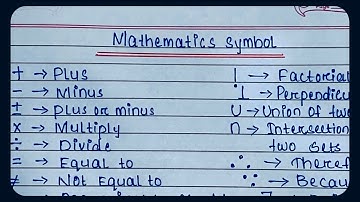 Mathematics Symbol
+ → Plus
- → Minus
± → Plus or minus
× → Multiply
÷ → Divide
= → Equal to
≠ → Not Equal to
! → Factorial
⊥ → Perpendicu
U → Union of two
∩ → Intersection
two sets
∴ → Theref
∵ → Becau